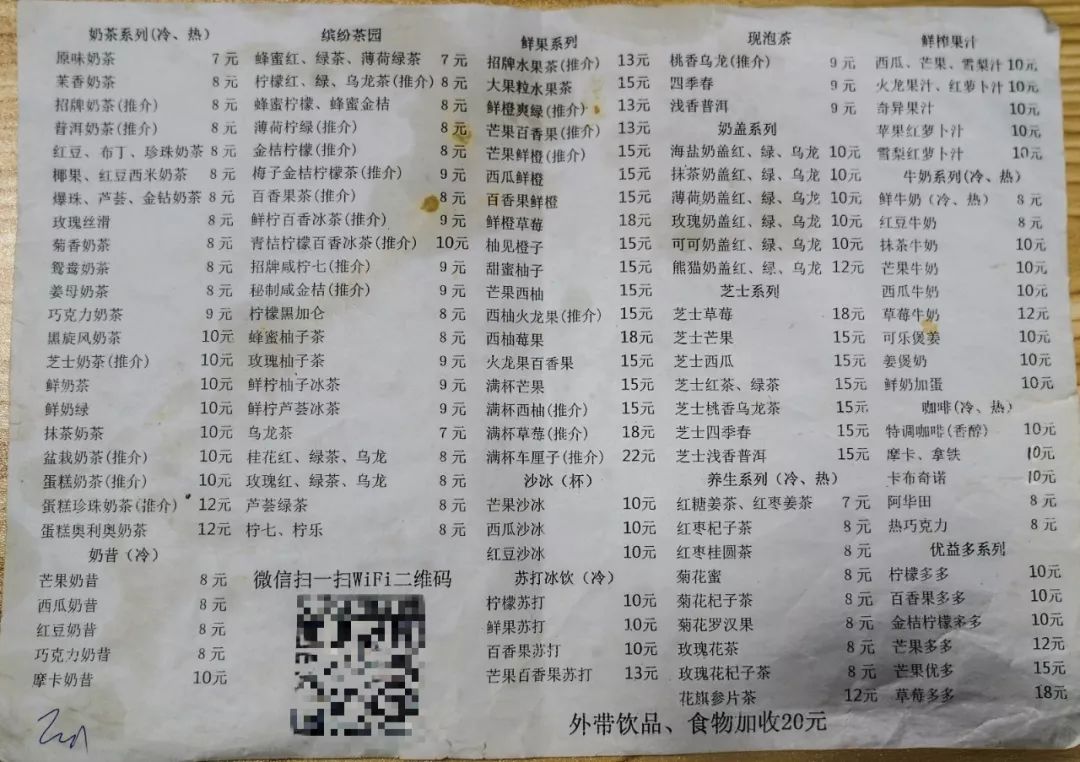 奶茶系列(冷、热)
原味奶茶 7元
茉香奶茶 8元
招牌奶茶(推介) 8元
普洱奶茶(推介) 8元
红豆、布丁、珍珠奶茶 8元
椰果、红豆西米奶茶 8元
爆珠、芦荟、金钻奶茶 8元
玫瑰丝滑 8元
菊香奶茶 8元
鸳鸯奶茶 8元
姜母奶茶 8元
巧克力奶茶 9元
黑旋风奶茶 10元
芝士奶茶(推介) 10元
鲜奶茶 10元
鲜奶绿 10元
抹茶奶茶 10元
盆栽奶茶(推介) 10元
蛋糕奶茶(推介) 10元
蛋糕珍珠奶茶(推介) 12元
蛋糕奥利奥奶茶 12元
奶昔（冷）
芒果奶昔 8元
西瓜奶昔 8元
红豆奶昔 8元
巧克力奶昔 8元
摩卡奶昔 10元
缤纷茶园
蜂蜜红、绿茶、薄荷绿茶 7元
柠檬红、绿、乌龙茶(推介) 8元
蜂蜜柠檬、蜂蜜金桔 8元
薄荷柠绿(推介) 8元
金桔柠檬(推介) 8元
梅子金桔柠檬茶(推介) 9元
百香果茶(推介) 8元
鲜柠百香冰茶(推介) 9元
青桔柠檬百香冰茶(推介) 10元
招牌咸柠七(推介) 9元
秘制咸金桔(推介) 9元
柠檬黑加仑 8元
蜂蜜柚子茶 8元
玫瑰柚子茶 9元
鲜柠柚子冰茶 9元
鲜柠芦荟冰茶 9元
乌龙茶 7元
桂花红、绿茶、乌龙 8元
玫瑰红、绿茶、乌龙 8元
芦荟绿茶 8元
柠七、柠乐 8元
微信扫一扫WiFi二维码
鲜果系列
招牌水果茶(推介) 13元
大果粒水果茶 15元
鲜橙爽绿(推介) 13元
芒果百香果(推介) 13元
芒果鲜橙(推介) 15元
西瓜鲜橙 15元
百香果鲜橙 15元
鲜橙草莓 18元
柚见橙子 15元
甜蜜柚子 15元
芒果西柚 15元
西柚火龙果(推介) 15元
西柚莓果 18元
火龙果百香果 15元
满杯芒果 15元
满杯西柚(推介) 15元
满杯草莓(推介) 18元
满杯车厘子(推介) 22元
沙冰（杯）
芒果沙冰 10元
西瓜沙冰 10元
红豆沙冰 10元
苏打冰饮（冷）
柠檬苏打 10元
鲜果苏打 10元
百香果苏打 10元
芒果百香果苏打 13元
现泡茶
桃香乌龙(推介) 9元
四季春 9元
浅香普洱 9元
奶盖系列
海盐奶盖红、绿、乌龙 10元
抹茶奶盖红、绿、乌龙 10元
薄荷奶盖红、绿、乌龙 10元
玫瑰奶盖红、绿、乌龙 10元
可可奶盖红、绿、乌龙 10元
熊猫奶盖红、绿、乌龙 12元
芝士系列
芝士草莓 18元
芝士芒果 15元
芝士西瓜 15元
芝士红茶、绿茶 15元
芝士桃香乌龙茶 15元
芝士四季春 15元
芝士浅香普洱 15元
养生系列（冷、热）
红糖姜茶、红枣姜茶 7元
红枣杞子茶 8元
红枣桂圆茶 8元
菊花蜜 8元
菊花杞子茶 8元
菊花罗汉果 8元
玫瑰花茶 8元
玫瑰花杞子茶 8元
花旗参片茶 12元
鲜榨果汁
西瓜、芒果、雪梨汁 10元
火龙果汁、红萝卜汁 10元
奇异果汁 10元
苹果红萝卜汁 10元
雪梨红萝卜汁 10元
牛奶系列(冷、热)
鲜牛奶（冷、热） 8元
红豆牛奶 8元
抹茶牛奶 10元
芒果牛奶 10元
西瓜牛奶 10元
草莓牛奶 12元
可乐煲姜 10元
姜煲奶 10元
鲜奶加蛋 10元
咖啡(冷、热)
特调咖啡(香醇) 10元
摩卡、拿铁 10元
卡布奇诺 10元
阿华田 8元
热巧克力 8元
优益多系列
柠檬多多 10元
百香果多多 10元
金桔柠檬多多 10元
芒果多多 12元
芒果优多 15元
草莓多多 18元
外带饮品、食物加收20元